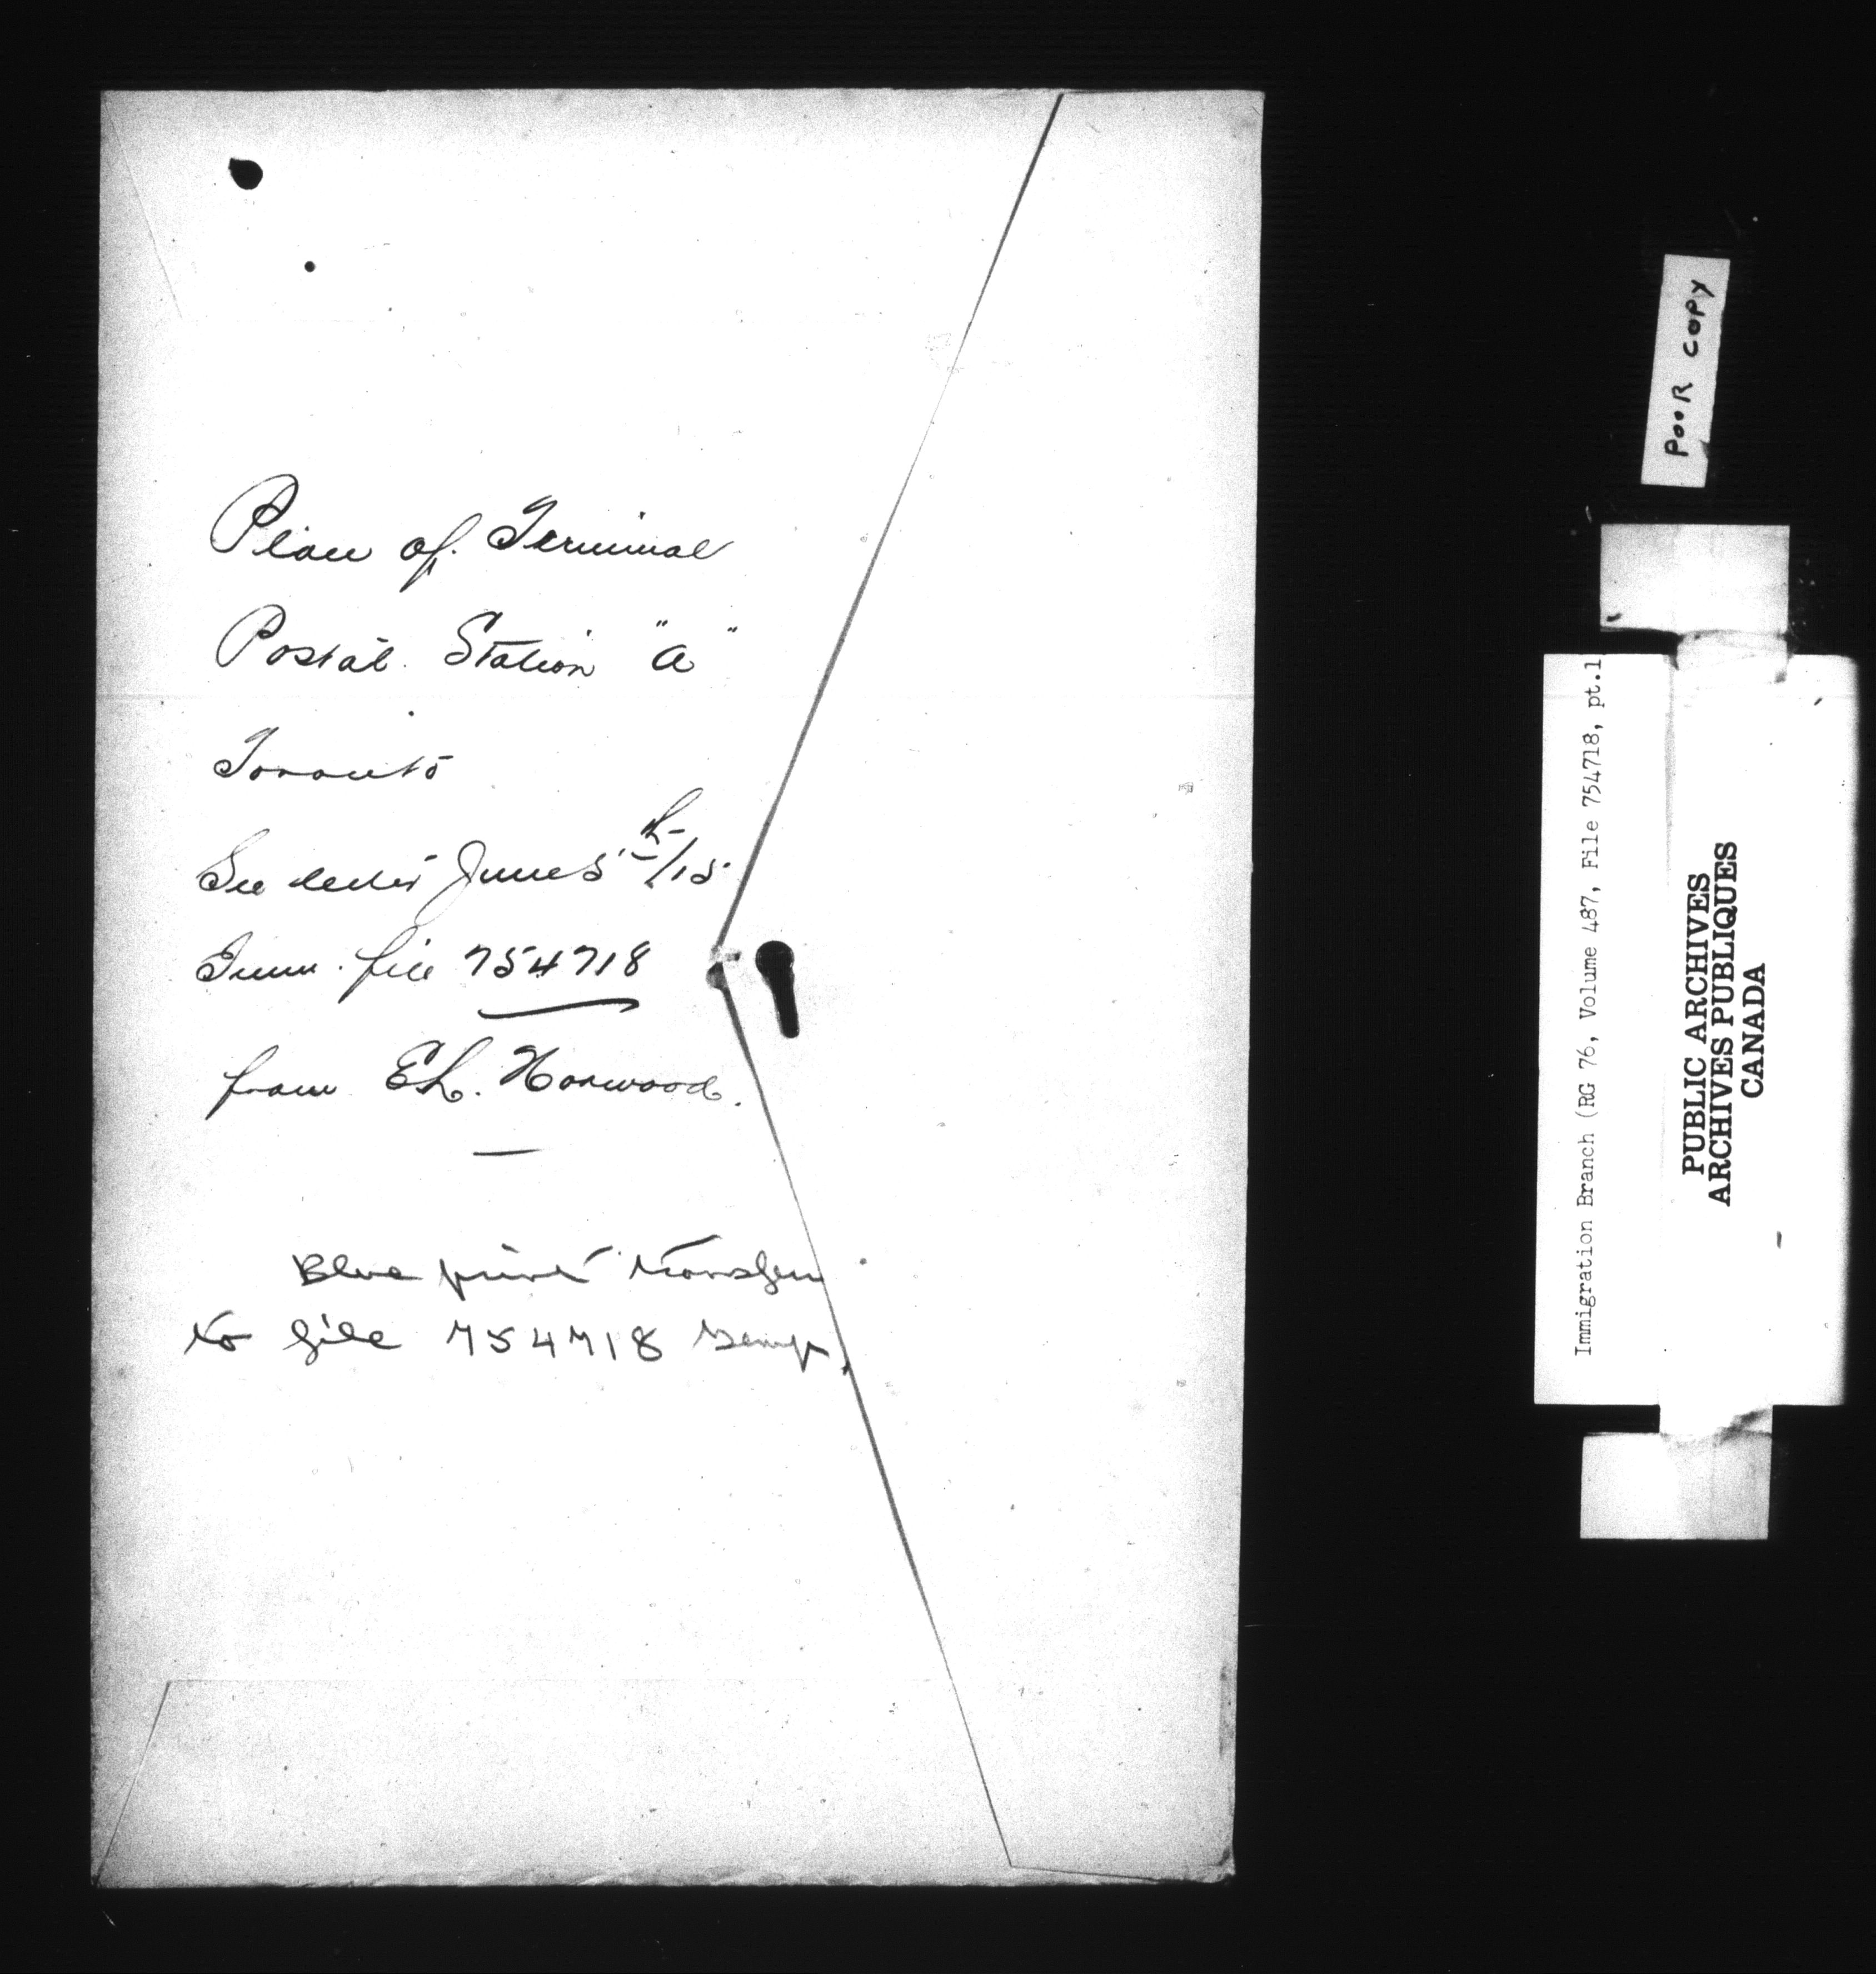 Plan of Terminal
Postal Station "A"
Toronto
See letter June 5th/15
Imm. file 754718
from E.L. Horwood.
Blue print transfer
to file 754718 temp.
POOR COPY
Immigration Branch (RG 76, Volume 487, File 754718, pt.1
PUBLIC ARCHIVES
ARCHIVES PUBLIQUES
CANADA